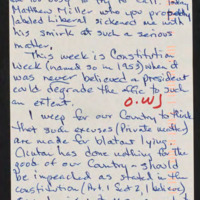 too busy to try to call. Today
Matthew Miller who you probably
labeled Liberal sickened me with
his smirk at such a serious
matter.
This week is Constitution
Week (named so in 1953) when it
was never believed a president
could degrade the office to such
an extent.
O.W.J
I weep for our Country to think
that such excuses (Private matter)
are made for blatant lying.
Clinton has done nothing for the
good of our Country & should
be impeached as stated in the
constitution (Art. 1 Sect 2, I believe).